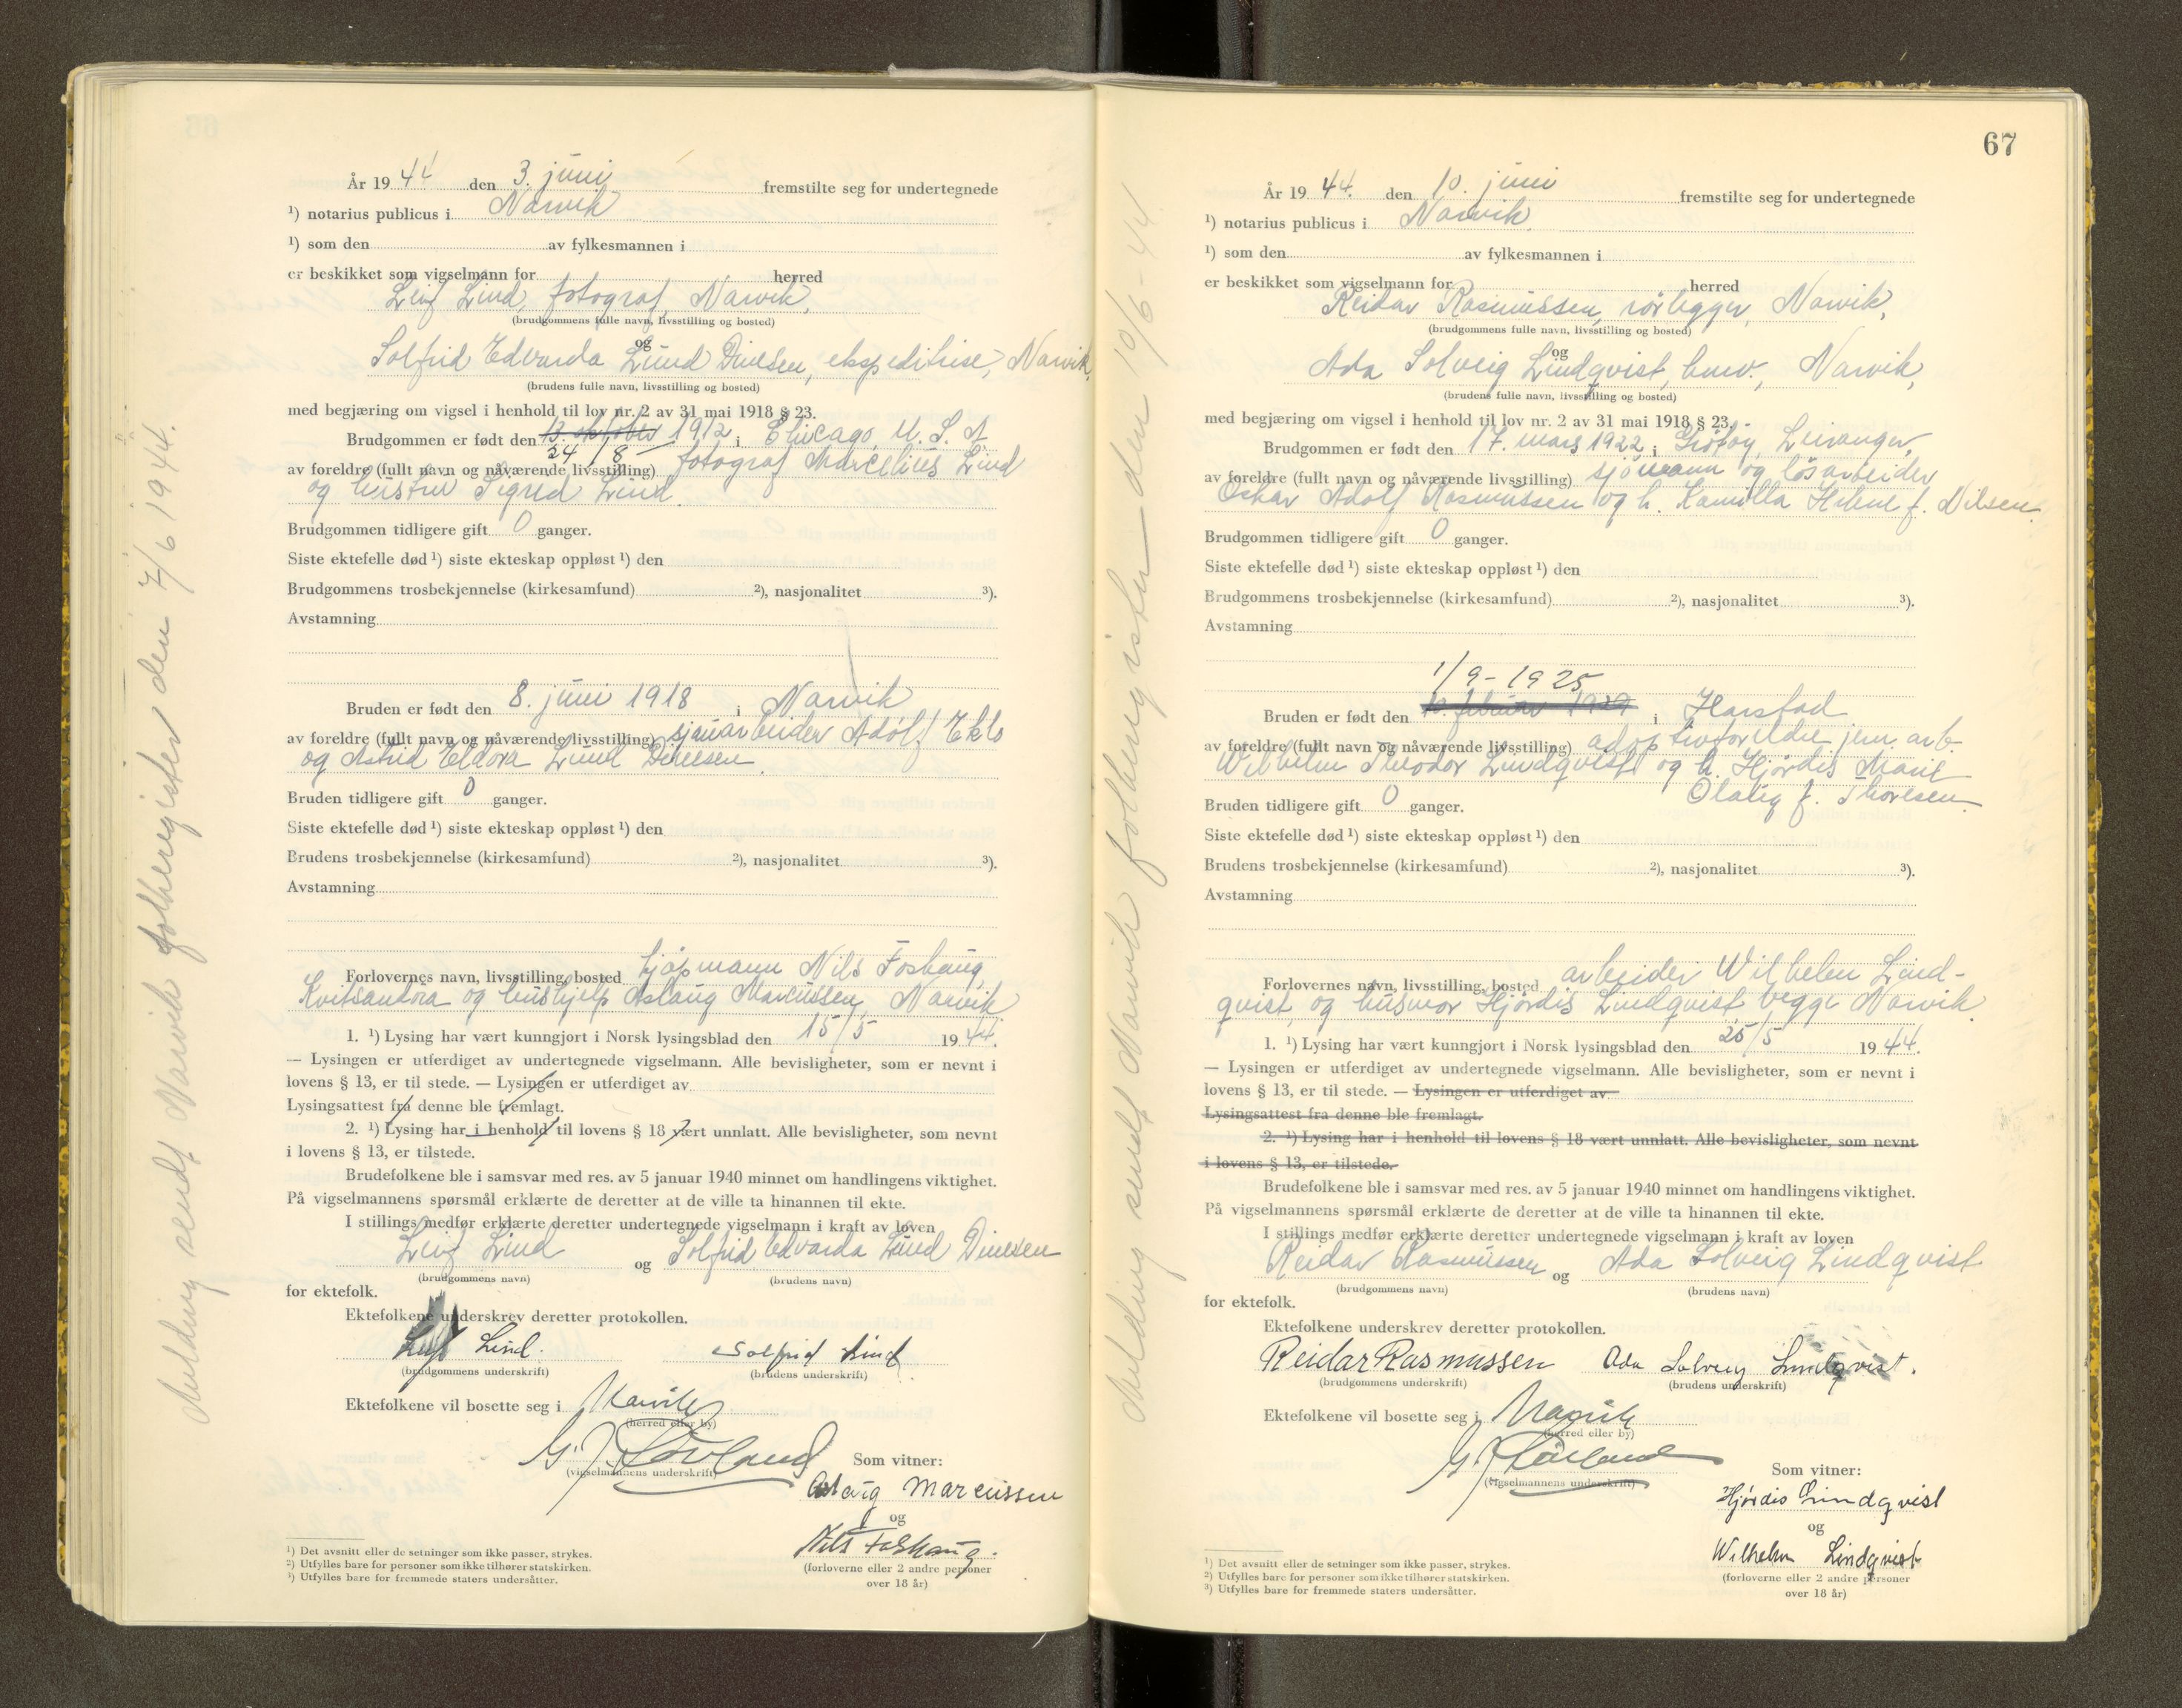 Melding sendt Narvik folkeregister den 7/6 1944.
År 1944 den 3. juni fremstilte seg for undertegnede
¹) notarius publicus i Narvik
¹) som den av fylkesmannen i
er beskikket som vigselmann for herred
Leif Lind, fotograf, Narvik,
(brudgommens fulle navn, livsstilling og bosted)
og
Solfrid Edvarda Lund Dinesen, ekspeditrise, Narvik,
(brudens fulle navn, livsstilling og bosted)
med begjæring om vigsel i henhold til lov nr. 2 av 31 mai 1918 § 23.
Brudgommen er født den 13. oktober 1912 i Chicago, U. S. A
24/8
av foreldre (fullt navn og nåværende livsstilling) fotograf Marcelius Lind
og hustru Sigrid Lind.
Brudgommen tidligere gift 0 ganger.
Siste ektefelle død ¹) siste ekteskap oppløst ¹) den
Brudgommens trosbekjennelse (kirkesamfund) ²), nasjonalitet ³).
Avstamning
Bruden er født den 8. juni 1918 i Narvik
av foreldre (fullt navn og nåværende livsstilling) sjauarbeider Adolf Eklo
og Astrid Eldora Lund Dinesen.
Bruden tidligere gift 0 ganger.
Siste ektefelle død ¹) siste ekteskap oppløst ¹) den
Brudens trosbekjennelse (kirkesamfund) ²), nasjonalitet ³).
Avstamning
Forlovernes navn, livsstilling, bosted kjøpmann Nils Foshaug,
Kvitsandøra og hushjelp Aslaug Marcussen, Narvik
1. ¹) Lysing har vært kunngjort i Norsk lysingsblad den 15/5 1944.
— Lysingen er utferdiget av undertegnede vigselmann. Alle bevisligheter, som er nevnt i
lovens § 13, er til stede. — Lysingen er utferdiget av
Lysingsattest fra denne ble fremlagt.
2. ¹) Lysing har i henhold til lovens § 18 vært unnlatt. Alle bevisligheter, som nevnt
i lovens § 13, er tilstede.
Brudefolkene ble i samsvar med res. av 5 januar 1940 minnet om handlingens viktighet.
På vigselmannens spørsmål erklærte de deretter at de ville ta hinannen til ekte.
I stillings medfør erklærte deretter undertegnede vigselmann i kraft av loven
Leif Lind og Solfrid Edvarda Lund Dinesen
(brudgommens navn) (brudens navn)
for ektefolk.
Ektefolkene underskrev deretter protokollen.
Leif Lind. Solfrid Lind
(brudgommens underskrift) (brudens underskrift)
Ektefolkene vil bosette seg i Narvik
(herred eller by)
(vigselmannens underskrift)
Som vitner:
Aslaug Marcussen
og
Nils Foshaug.
(forloverne eller 2 andre personer
over 18 år)
¹) Det avsnitt eller de setninger som ikke passer, strykes.
²) Utfylles bare for personer som ikke tilhører statskirken.
³) Utfylles bare for fremmede staters undersåtter.
67
Melding sendt Narvik folkeregister den 19/6-44
År 1944. den 10. juni fremstilte seg for undertegnede
¹) notarius publicus i Narvik.
¹) som den av fylkesmannen i
er beskikket som vigselmann for herred
Reidar Rasmussen, rørlegger, Narvik,
(brudgommens fulle navn, livsstilling og bosted)
og
Ada Solveig Lindqvist, husv., Narvik,
(brudens fulle navn, livsstilling og bosted)
med begjæring om vigsel i henhold til lov nr. 2 av 31 mai 1918 § 23.
Brudgommen er født den 17. mars 1922 i Grøtøy, Leiranger,
av foreldre (fullt navn og nåværende livsstilling) sjømann og løsarbeider
Oskar Adolf Rasmussen og h. Kamilla Helene f. Nilsen.
Brudgommen tidligere gift 0 ganger.
Siste ektefelle død ¹) siste ekteskap oppløst ¹) den
Brudgommens trosbekjennelse (kirkesamfund) ²), nasjonalitet ³).
Avstamning
1/9-1925
Bruden er født den 10. februar 1929 i Harstad
av foreldre (fullt navn og nåværende livsstilling) adoptivforeldre jern.arb.
Wilhelm Theodor Lindqvist og h. Hjørdis Marit
Olaug f. Thoresen.
Bruden tidligere gift 0 ganger.
Siste ektefelle død ¹) siste ekteskap oppløst ¹) den
Brudens trosbekjennelse (kirkesamfund) ²), nasjonalitet ³).
Avstamning
Forlovernes navn, livsstilling, bosted arbeider Wilhelm Lind-
qvist, og husmor Hjørdis Lindqvist begge Narvik.
1. ¹) Lysing har vært kunngjort i Norsk lysingsblad den 25/5 1944.
— Lysingen er utferdiget av undertegnede vigselmann. Alle bevisligheter, som er nevnt i
lovens § 13, er til stede. — Lysingen er utferdiget av
Lysingsattest fra denne ble fremlagt.
2. ¹) Lysing har i henhold til lovens § 18 vært unnlatt. Alle bevisligheter, som nevnt
i lovens § 13, er tilstede.
Brudefolkene ble i samsvar med res. av 5 januar 1940 minnet om handlingens viktighet.
På vigselmannens spørsmål erklærte de deretter at de ville ta hinannen til ekte.
I stillings medfør erklærte deretter undertegnede vigselmann i kraft av loven
Reidar Rasmussen og Ada Solveig Lindqvist
(brudgommens navn) (brudens navn)
for ektefolk.
Ektefolkene underskrev deretter protokollen.
Reidar Rasmussen Ada Solveig Lindqvist.
(brudgommens underskrift) (brudens underskrift)
Ektefolkene vil bosette seg i Narvik
(herred eller by)
(vigselmannens underskrift)
Som vitner:
Hjørdis Lindqvist
og
Wilhelm Lindqvist
(forloverne eller 2 andre personer
over 18 år)
¹) Det avsnitt eller de setninger som ikke passer, strykes.
²) Utfylles bare for personer som ikke tilhører statskirken.
³) Utfylles bare for fremmede staters undersåtter.